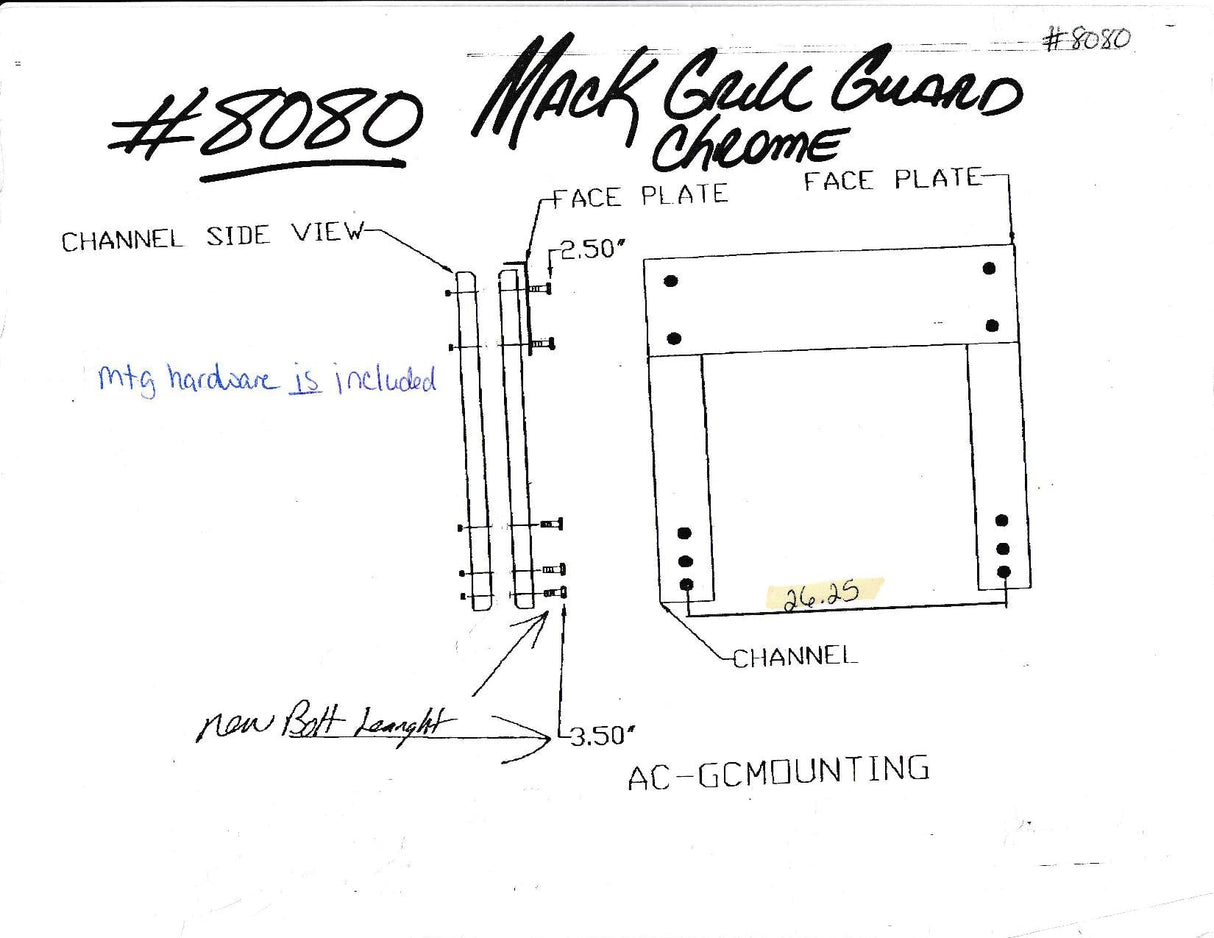 #8080
#8080 MACK GRILL GUARD
CHROME
FACE PLATE
FACE PLATE
CHANNEL SIDE VIEW
2.50"
mtg hardware is included
26.25
CHANNEL
new Bolt Leanght
3.50"
AC-GCMOUNTING